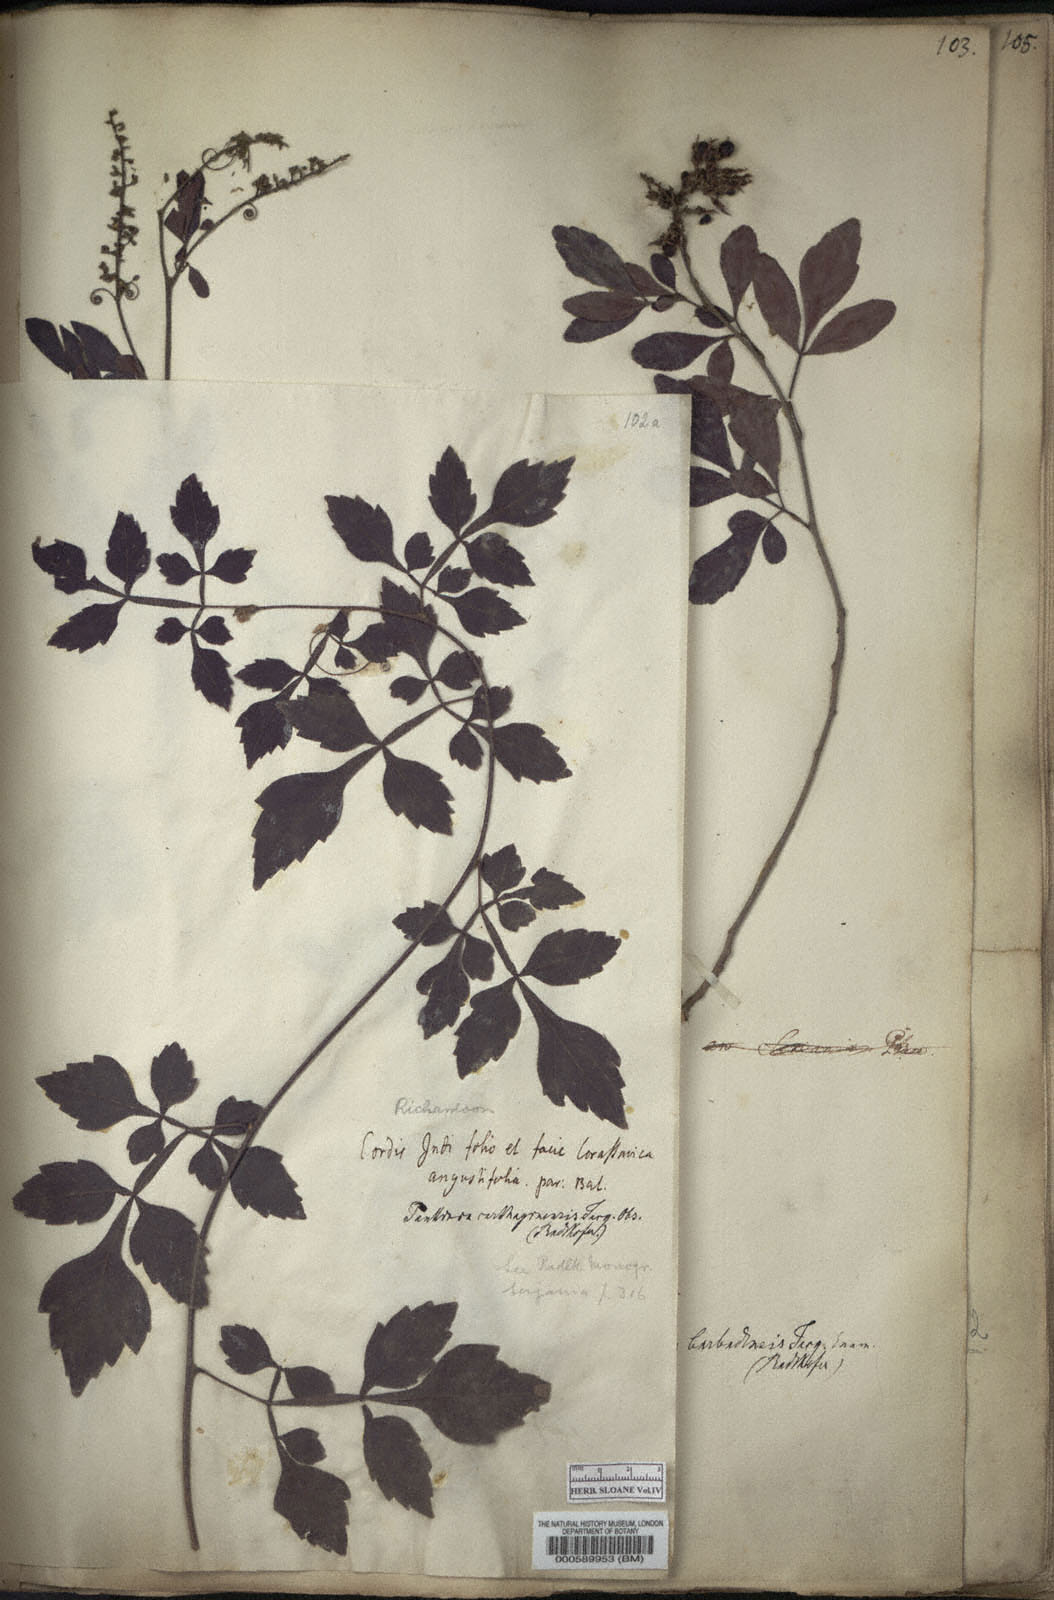 103.
105.
102a
Richardson
Cordis Indi folio et facie Corassavica
angustifolia. par: Bat.
Paullinia carthagenensis Jacq. Obs.
(Radlkofer.)
See Radlk. Monogr.
Serjania p. 316
Barbadensis Jacq. Enum.
(Radlkofer)
2
HERB. SLOANE Vol.IV
THE NATURAL HISTORY MUSEUM, LONDON
DEPARTMENT OF BOTANY
000589953 (BM)